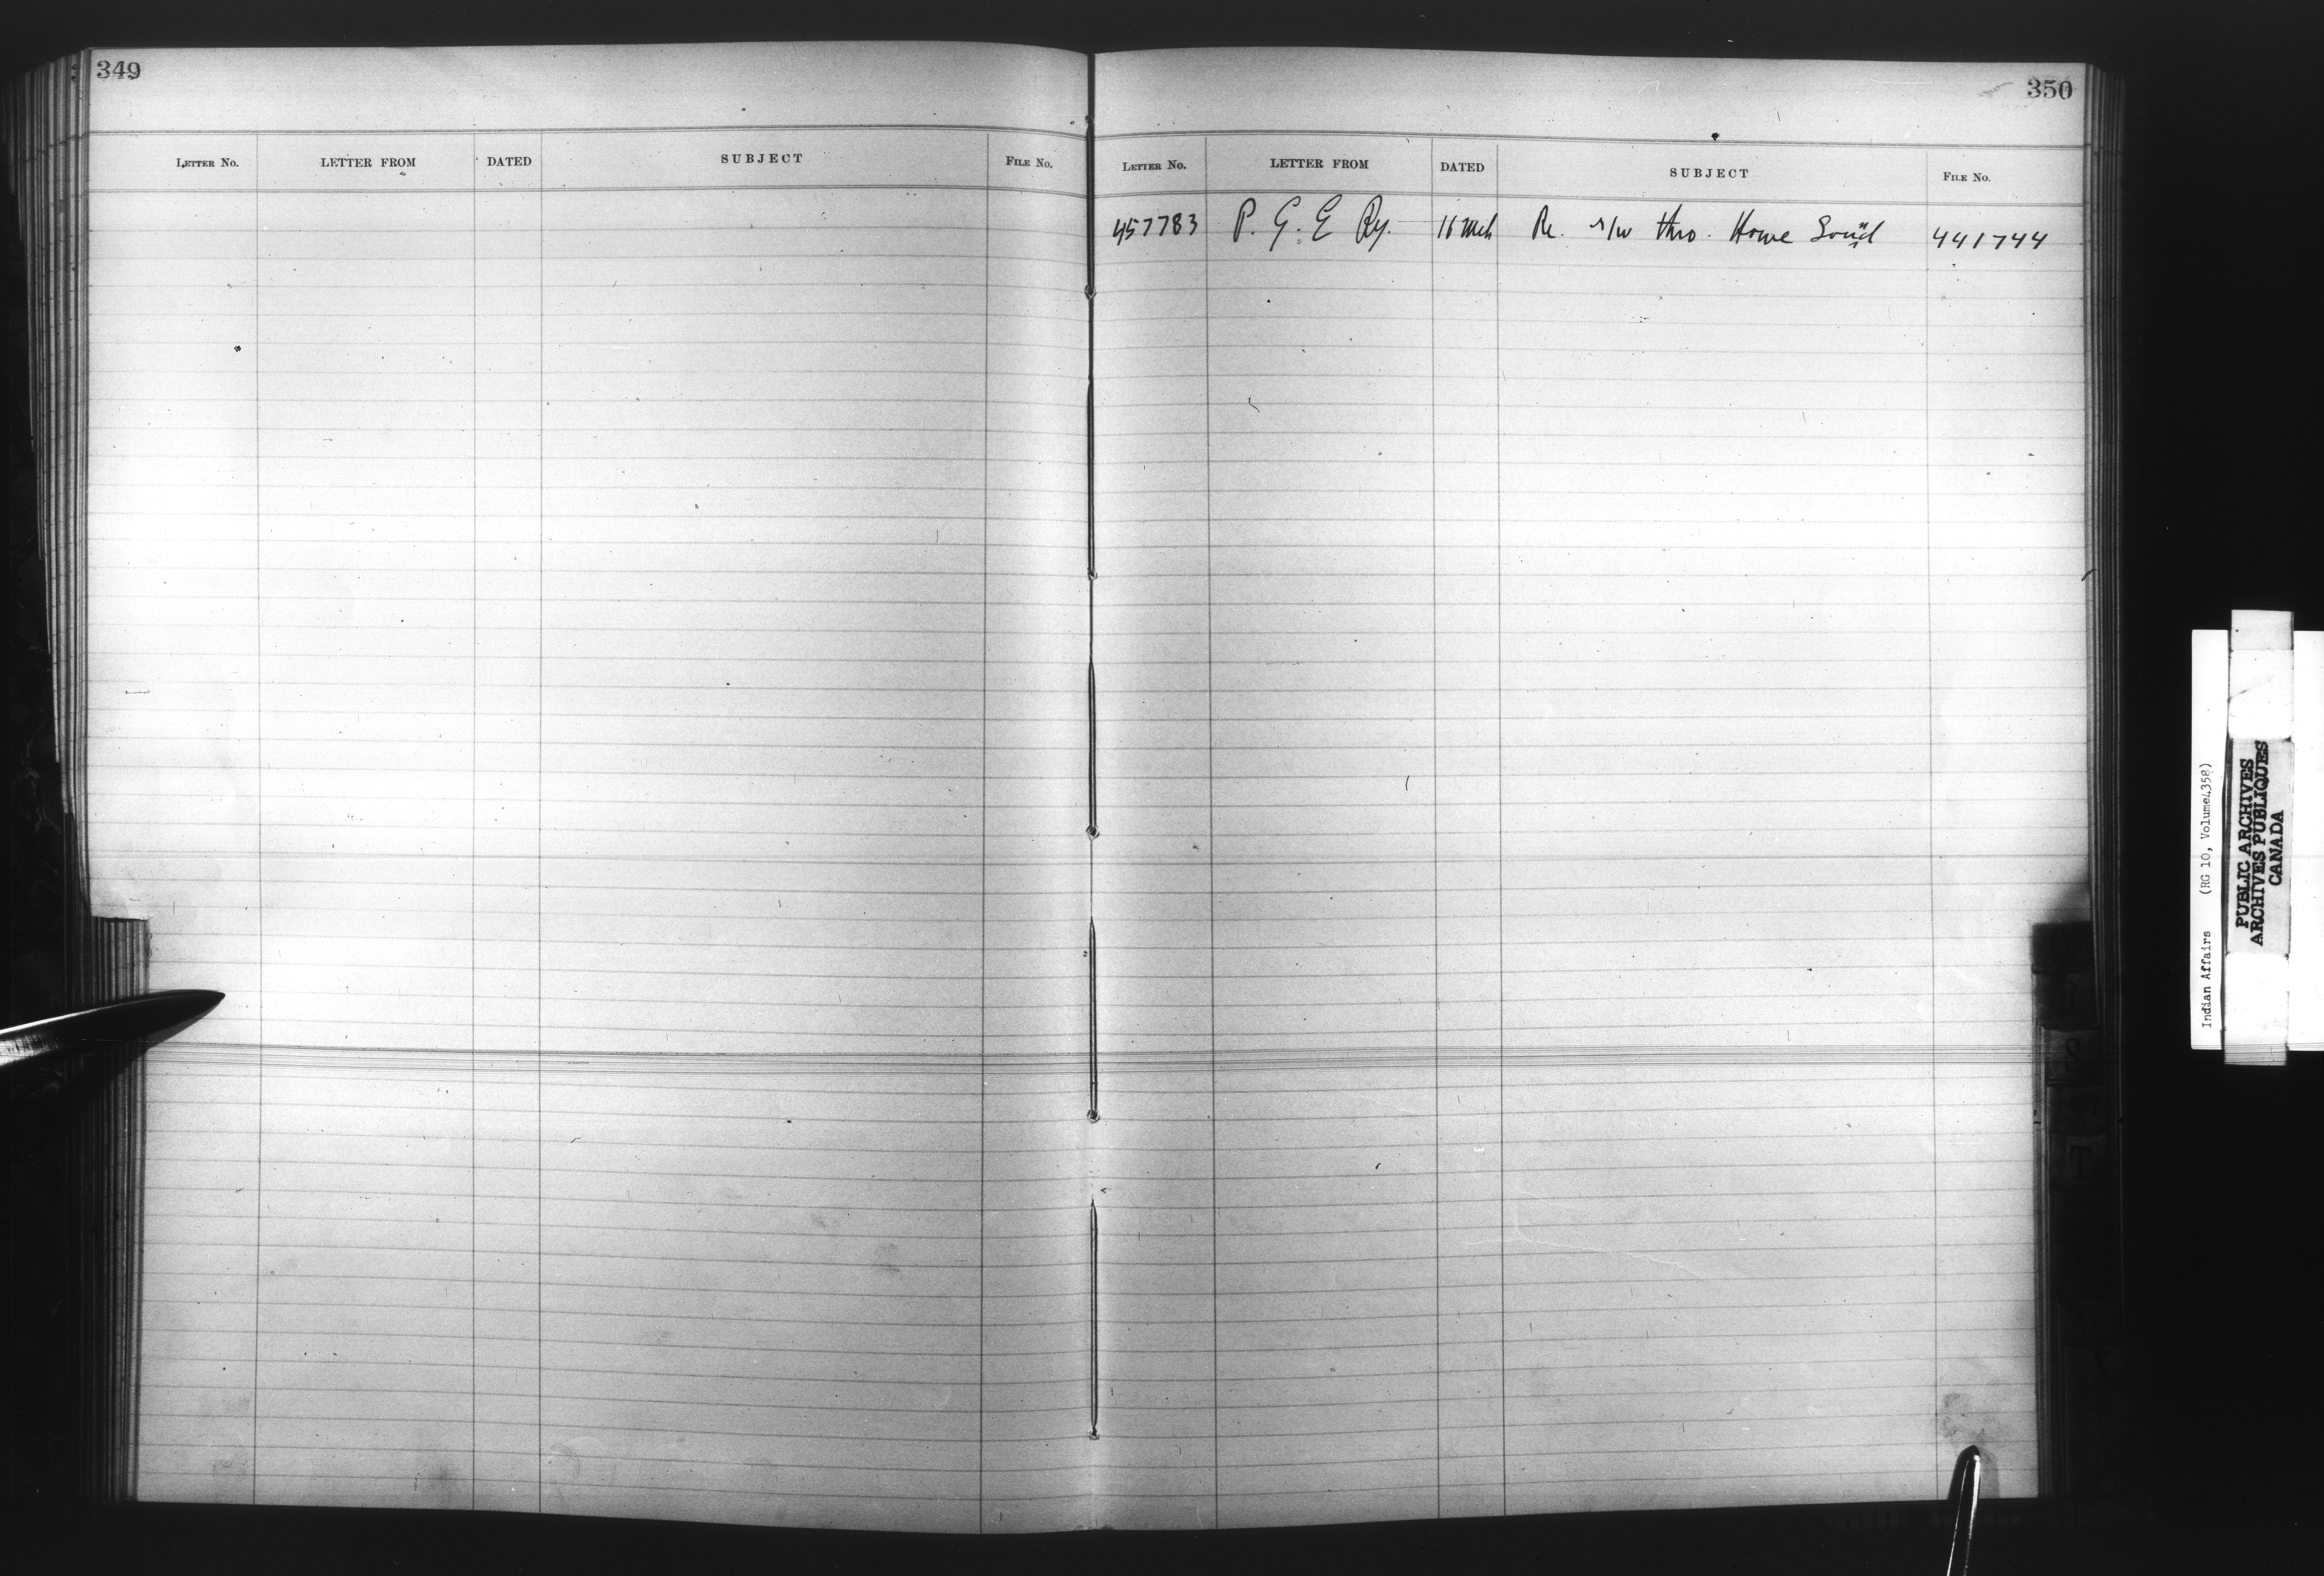 349
LETTER No. LETTER FROM DATED SUBJECT FILE No.
350
LETTER No. LETTER FROM DATED SUBJECT FILE No.
457783 P. G. E Ry. 16 Mch Re. r/w thro. Howe Sound 441744
R
S
T
Indian Affairs (RG 10, Volume4358)
PUBLIC ARCHIVES
ARCHIVES PUBLIQUES
CANADA